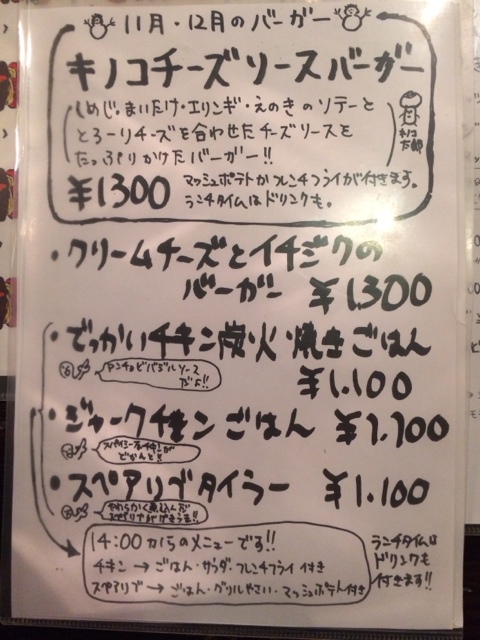 11月・12月のバーガー
キノコチーズソースバーガー
しめじ・まいたけ・エリンギ・えのきのソテーと
とろーりチーズを合わせたチーズソースを
たっぷりかけたバーガー!!
キノコ
太郎
¥1300 マッシュポテトかフレンチフライが付きます。
ランチタイムはドリンクも。
・クリームチーズとイチジクの
バーガー ¥1300
・でっかいチキン炭火焼きごはん
アンチョビバジルソース
だよ!!
¥1.100
・ジャークチキンごはん ¥1.100
スパイシーなチキンが
どかんと!!
・スペアリブタイラー ¥1.100
やわらかく煮込んだ
スペアリブがげきうま!!
14:00からのメニューです!!
チキン→ごはん・サラダ・フレンチフライ付き
スペアリブ→ごはん・グリルやさい・マッシュポテト付き
ランチタイムは
ドリンクも
付きます!!